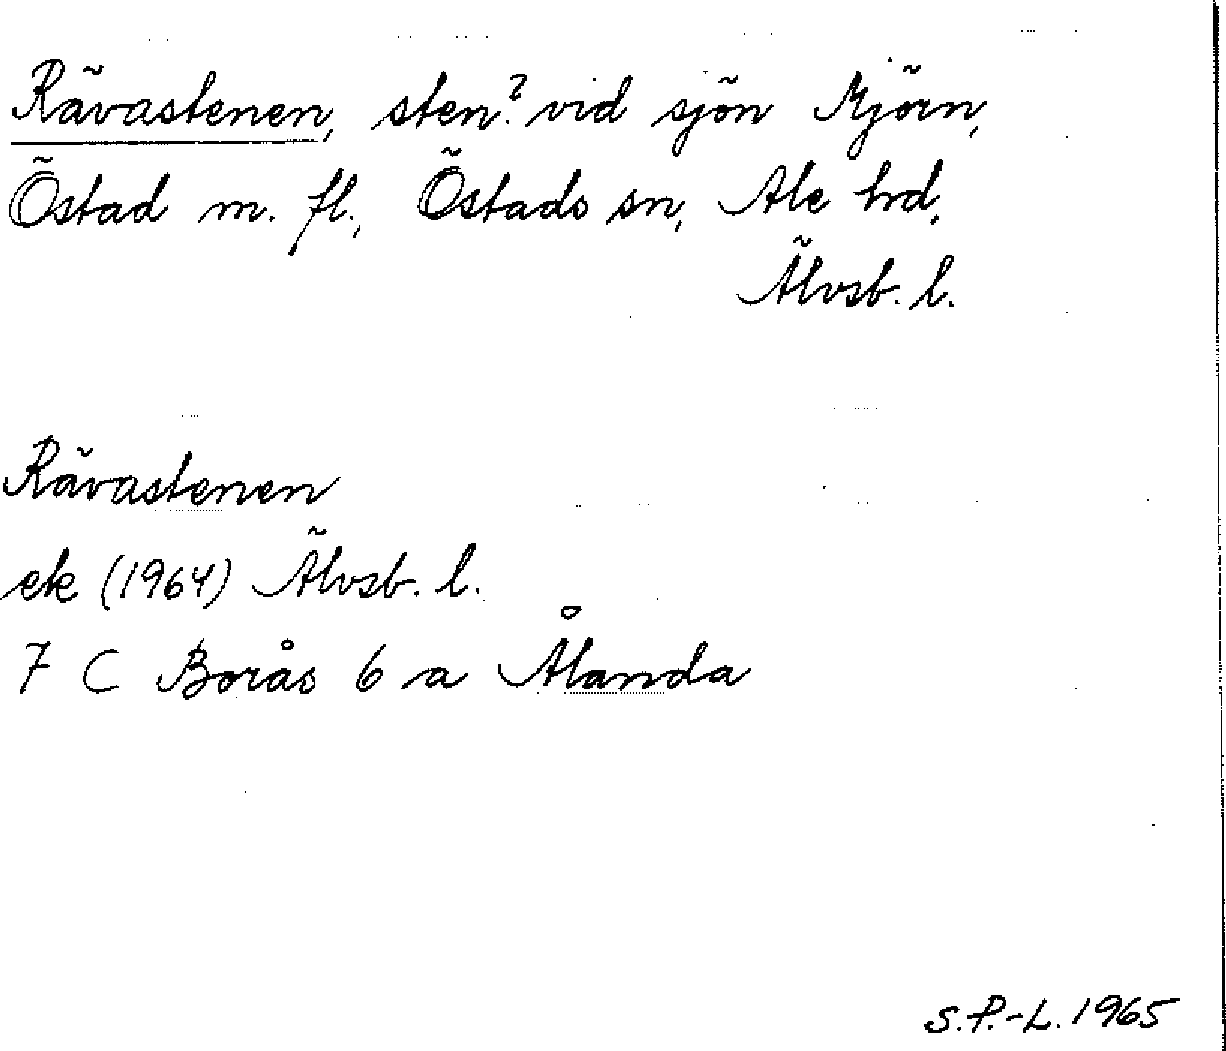 Rävastenen, sten? vid sjön Mjörn,
Östad m. fl., Östads sn, Ale hrd,
Älvsb. l.
Rävastenen
ek (1964) Älvsb. l.
7 C Borås 6 a Ålanda
S.P.-L. 1965